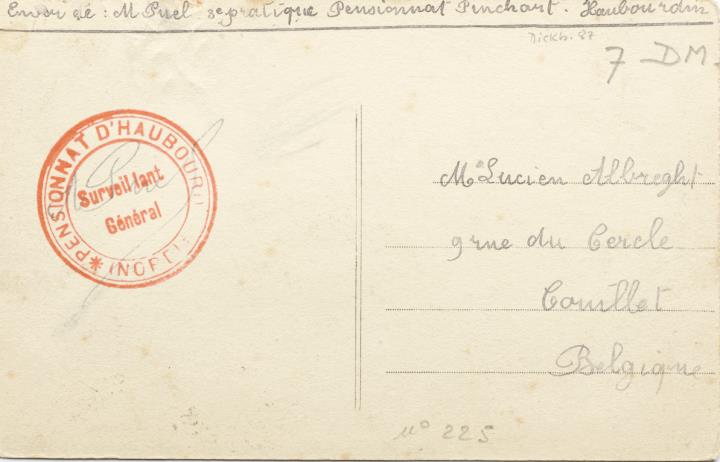 Envoi de : M Puel 3e pratique Pensionnat Pinchart. Haubourdin
Dickb. 87
7 DM.
PENSIONNAT D'HAUBOURDIN (NORD)
Surveillant
Général
Puel
Mr Lucien Albreght
9 rue du Cercle
Couillet
Belgique
No 225